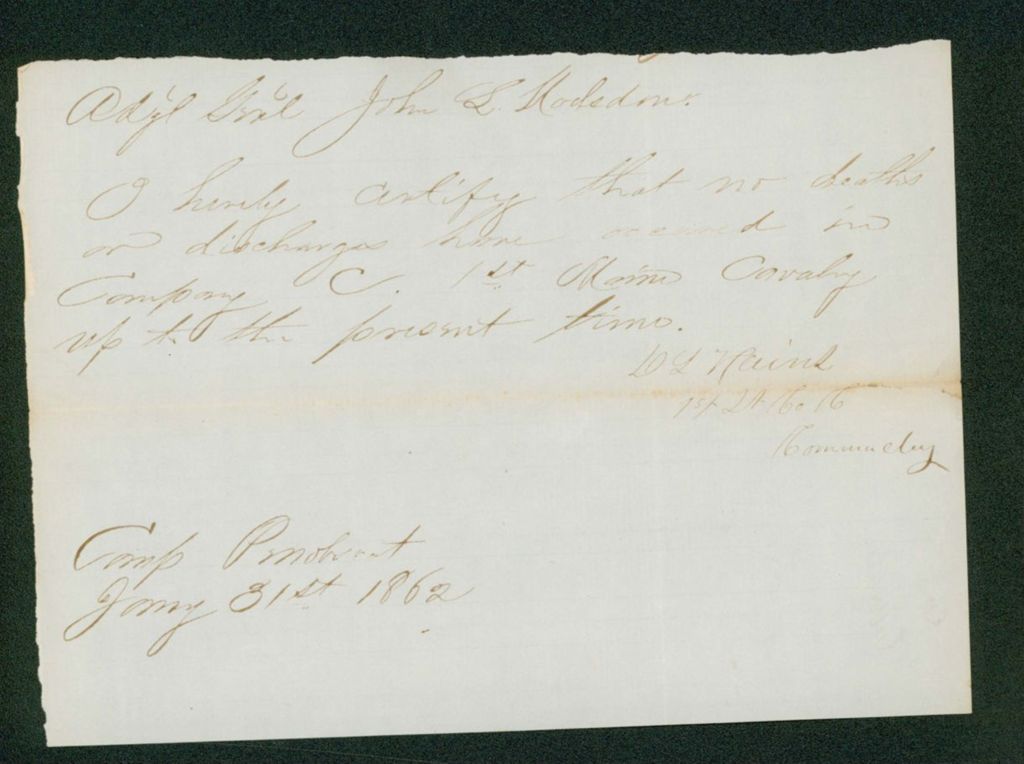 Adj't Gen'l John L. Hodsdon.
I hereby certify that no deaths
or discharges have occured in
Company C. 1st Maine Cavalry
up to the present time.
1st Lt Co
Camp Penobscot
Jany 31st 1862